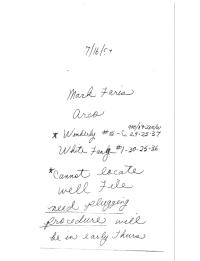 7/16/54
Mark Faria
Arco
* Wonderly #15-C 29-25-37
White Fang #1-30-25-36
*Cannot locate
well File
need plugging
procedure will
be in early Thurs